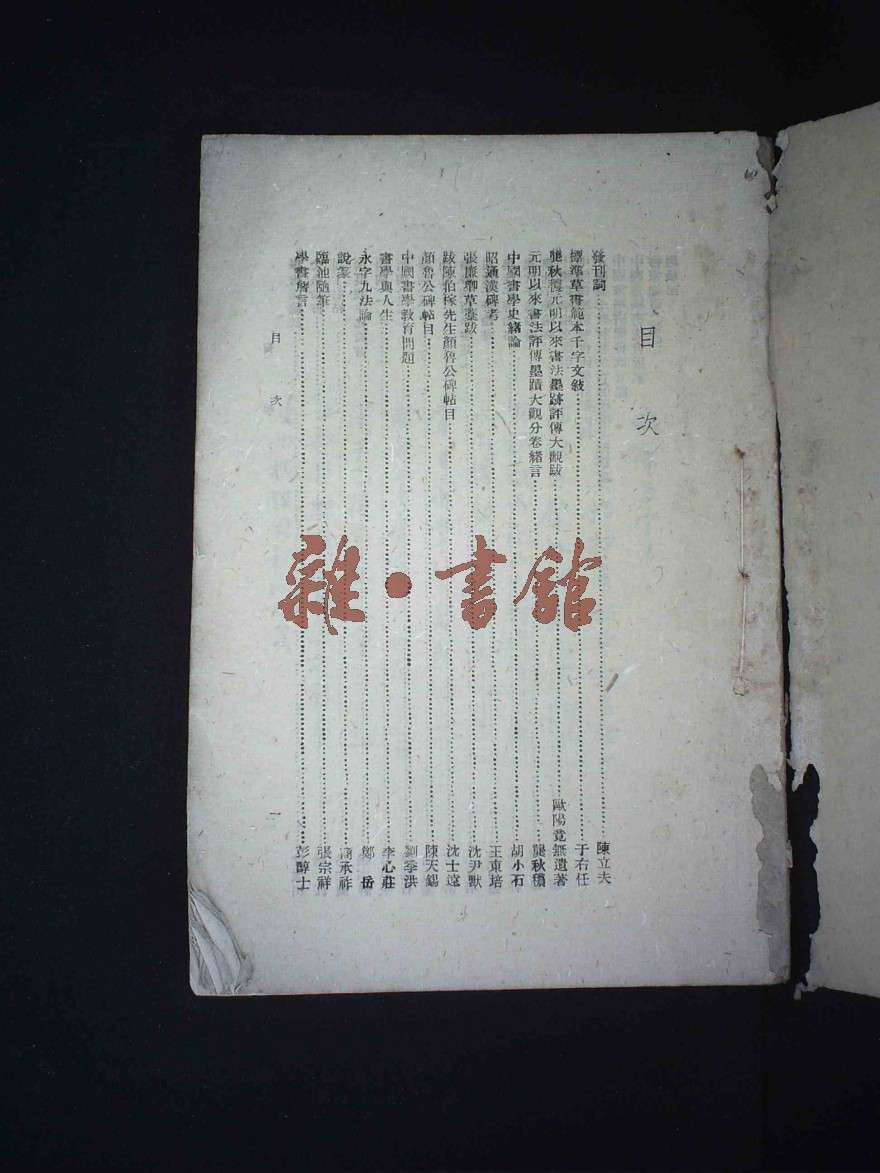 目次
發刊詞 陳立夫
標準草書範本千字文敍 于右任
龔秋穠元明以來書法墨跡評傳大觀跋 歐陽竟無遺著
元明以來書法評傳墨蹟大觀分卷緒言 龔秋穠
中國書學史緒論 胡小石
昭通漢碑考 王東培
張廉卿草藁跋 沈尹默
跋陳伯稼先生顏魯公碑帖目 沈士遠
顏魯公碑帖目 陳天錫
中國書學教育問題 劉季洪
書學與人生 李心莊
永字九法論 鄭岳
說篆 商承祚
臨池隨筆 張宗祥
學書詹言 彭醇士
目次 一
雜·書館